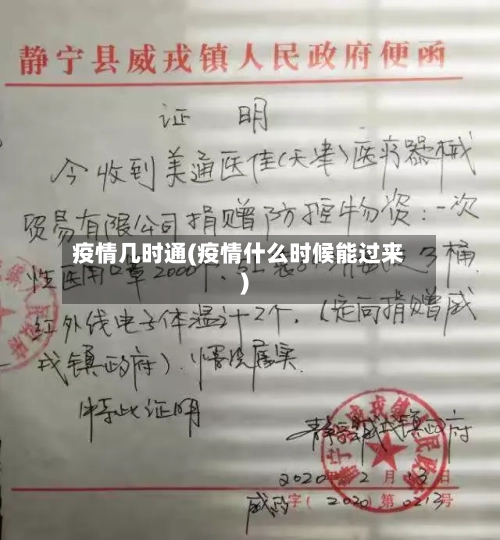 静宁县威戎镇人民政府便函
证 明
今收到美通医佳(天津)医疗器械
贸易有限公司捐赠防控物资:一次
疫情几时通(疫情什么时候能过来
)
性医用口罩2000个,
3桶.
红外线电子体温计2个.(定向捐赠威
戎镇政府).情况属实.
特此证明
静宁县威戎镇政府
2020年2月13日
威政字(2020)第0213号